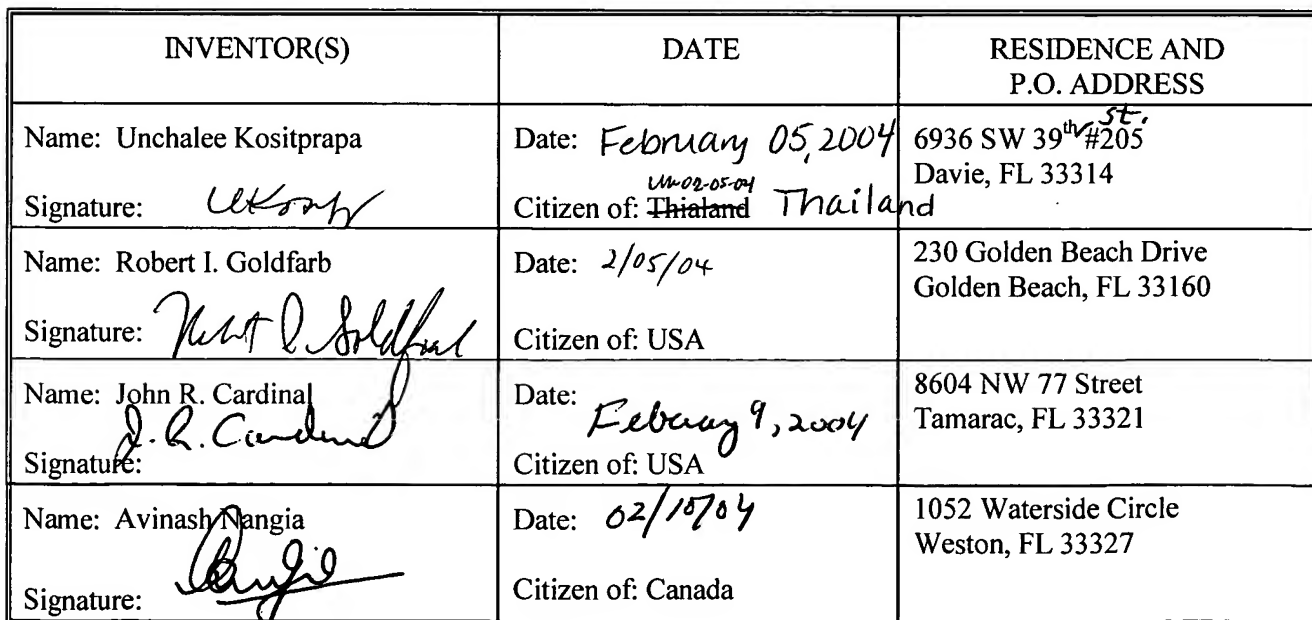 INVENTOR(S)
DATE
RESIDENCE AND
P.O. ADDRESS
Name: Unchalee Kositprapa
Signature:
Date: February 05, 2004
02-05-04
Citizen of: Thialand Thailand
6936 SW 39th st. #205
Davie, FL 33314
Name: Robert I. Goldfarb
Signature: Robert I. Goldfarb
Date: 2/05/04
Citizen of: USA
230 Golden Beach Drive
Golden Beach, FL 33160
Name: John R. Cardinal
J. R. Cardinal
Signature:
Date:
Febuary 9, 2004
Citizen of: USA
8604 NW 77 Street
Tamarac, FL 33321
Name: Avinash Nangia
Signature:
Date: 02/10/04
Citizen of: Canada
1052 Waterside Circle
Weston, FL 33327